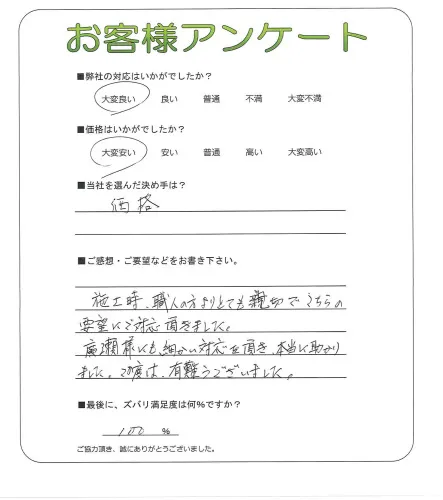 お客様アンケート
■弊社の対応はいかがでしたか?
大変良い 良い 普通 不満 大変不満
■価格はいかがでしたか?
大変安い 安い 普通 高い 大変高い
■当社を選んだ決め手は?
価格
■ご感想・ご要望などをお書き下さい。
施工時、職人の方よりとても親切でこちらの
要望にご対応頂きました。
廣瀬様にも細かい対応を頂き、本当に助かり
ました。この度は、有難うございました。
■最後に、ズバリ満足度は何%ですか?
100 %
ご協力頂き、誠にありがとうございました。